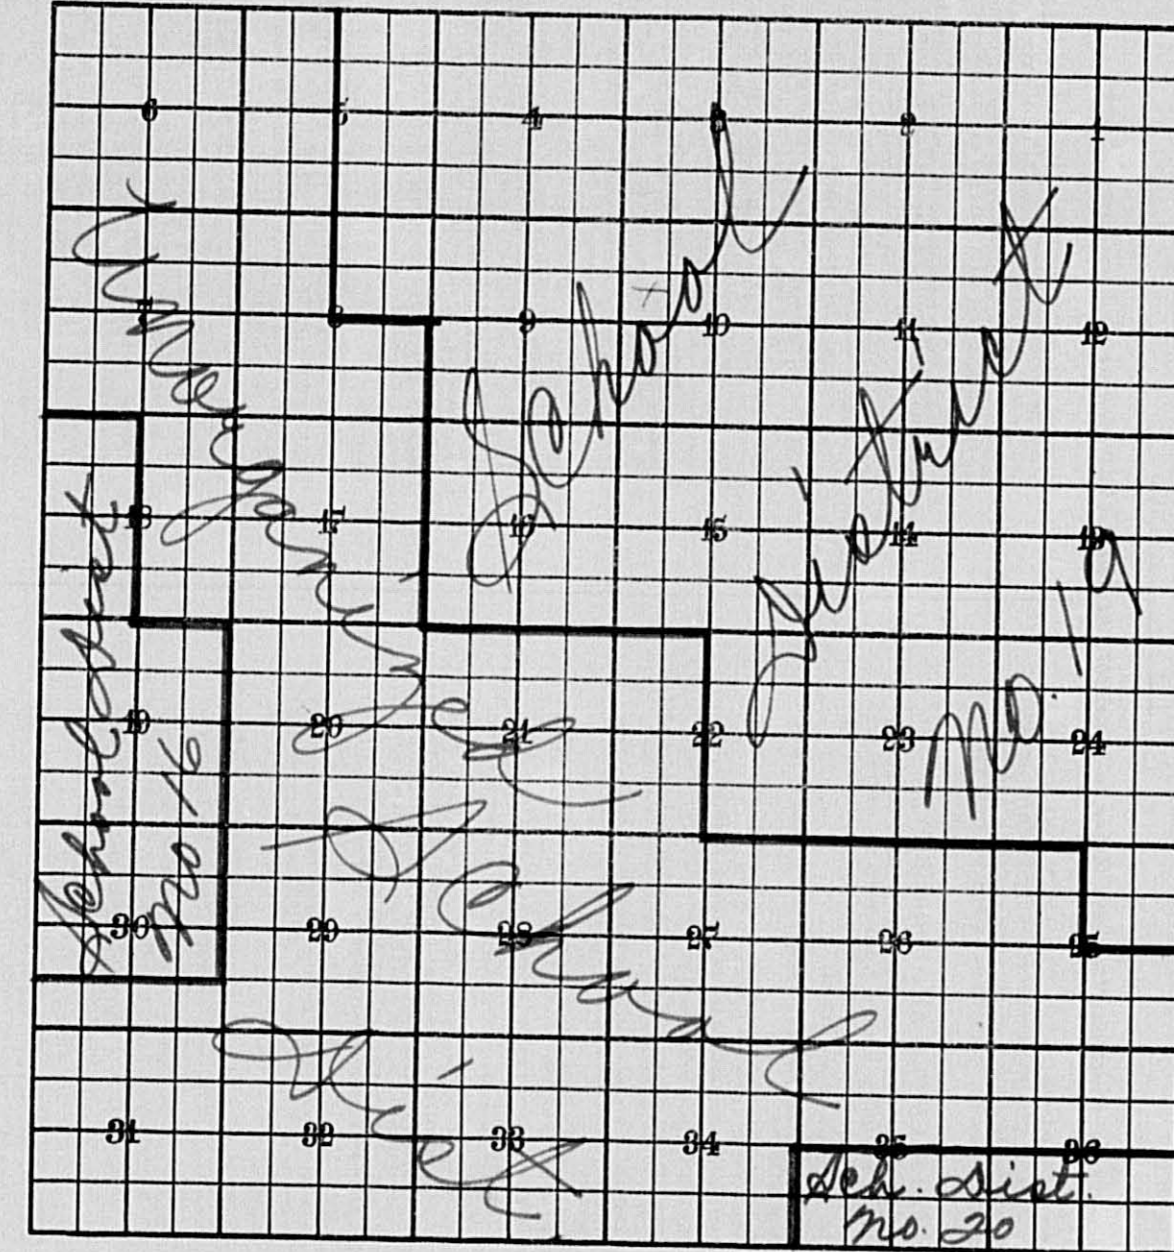 6 5 4 3 2 1
7 8 9 10 11 12
18 17 16 15 14 13
19 20 21 22 23 24
30 29 28 27 26 25
31 32 33 34 35 36
School
District
No. 19
Unorganized
School
Dist
School Dist
No 16
Sch. Dist.
No. 20